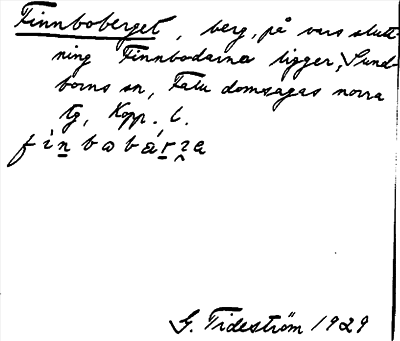 Finnboberget, berg, på vars slutt-
ning Finnbodarna ligger, Sund-
borns sn, Falu domsagas norra
tg, Kopp. l.
G. Tideström 1929